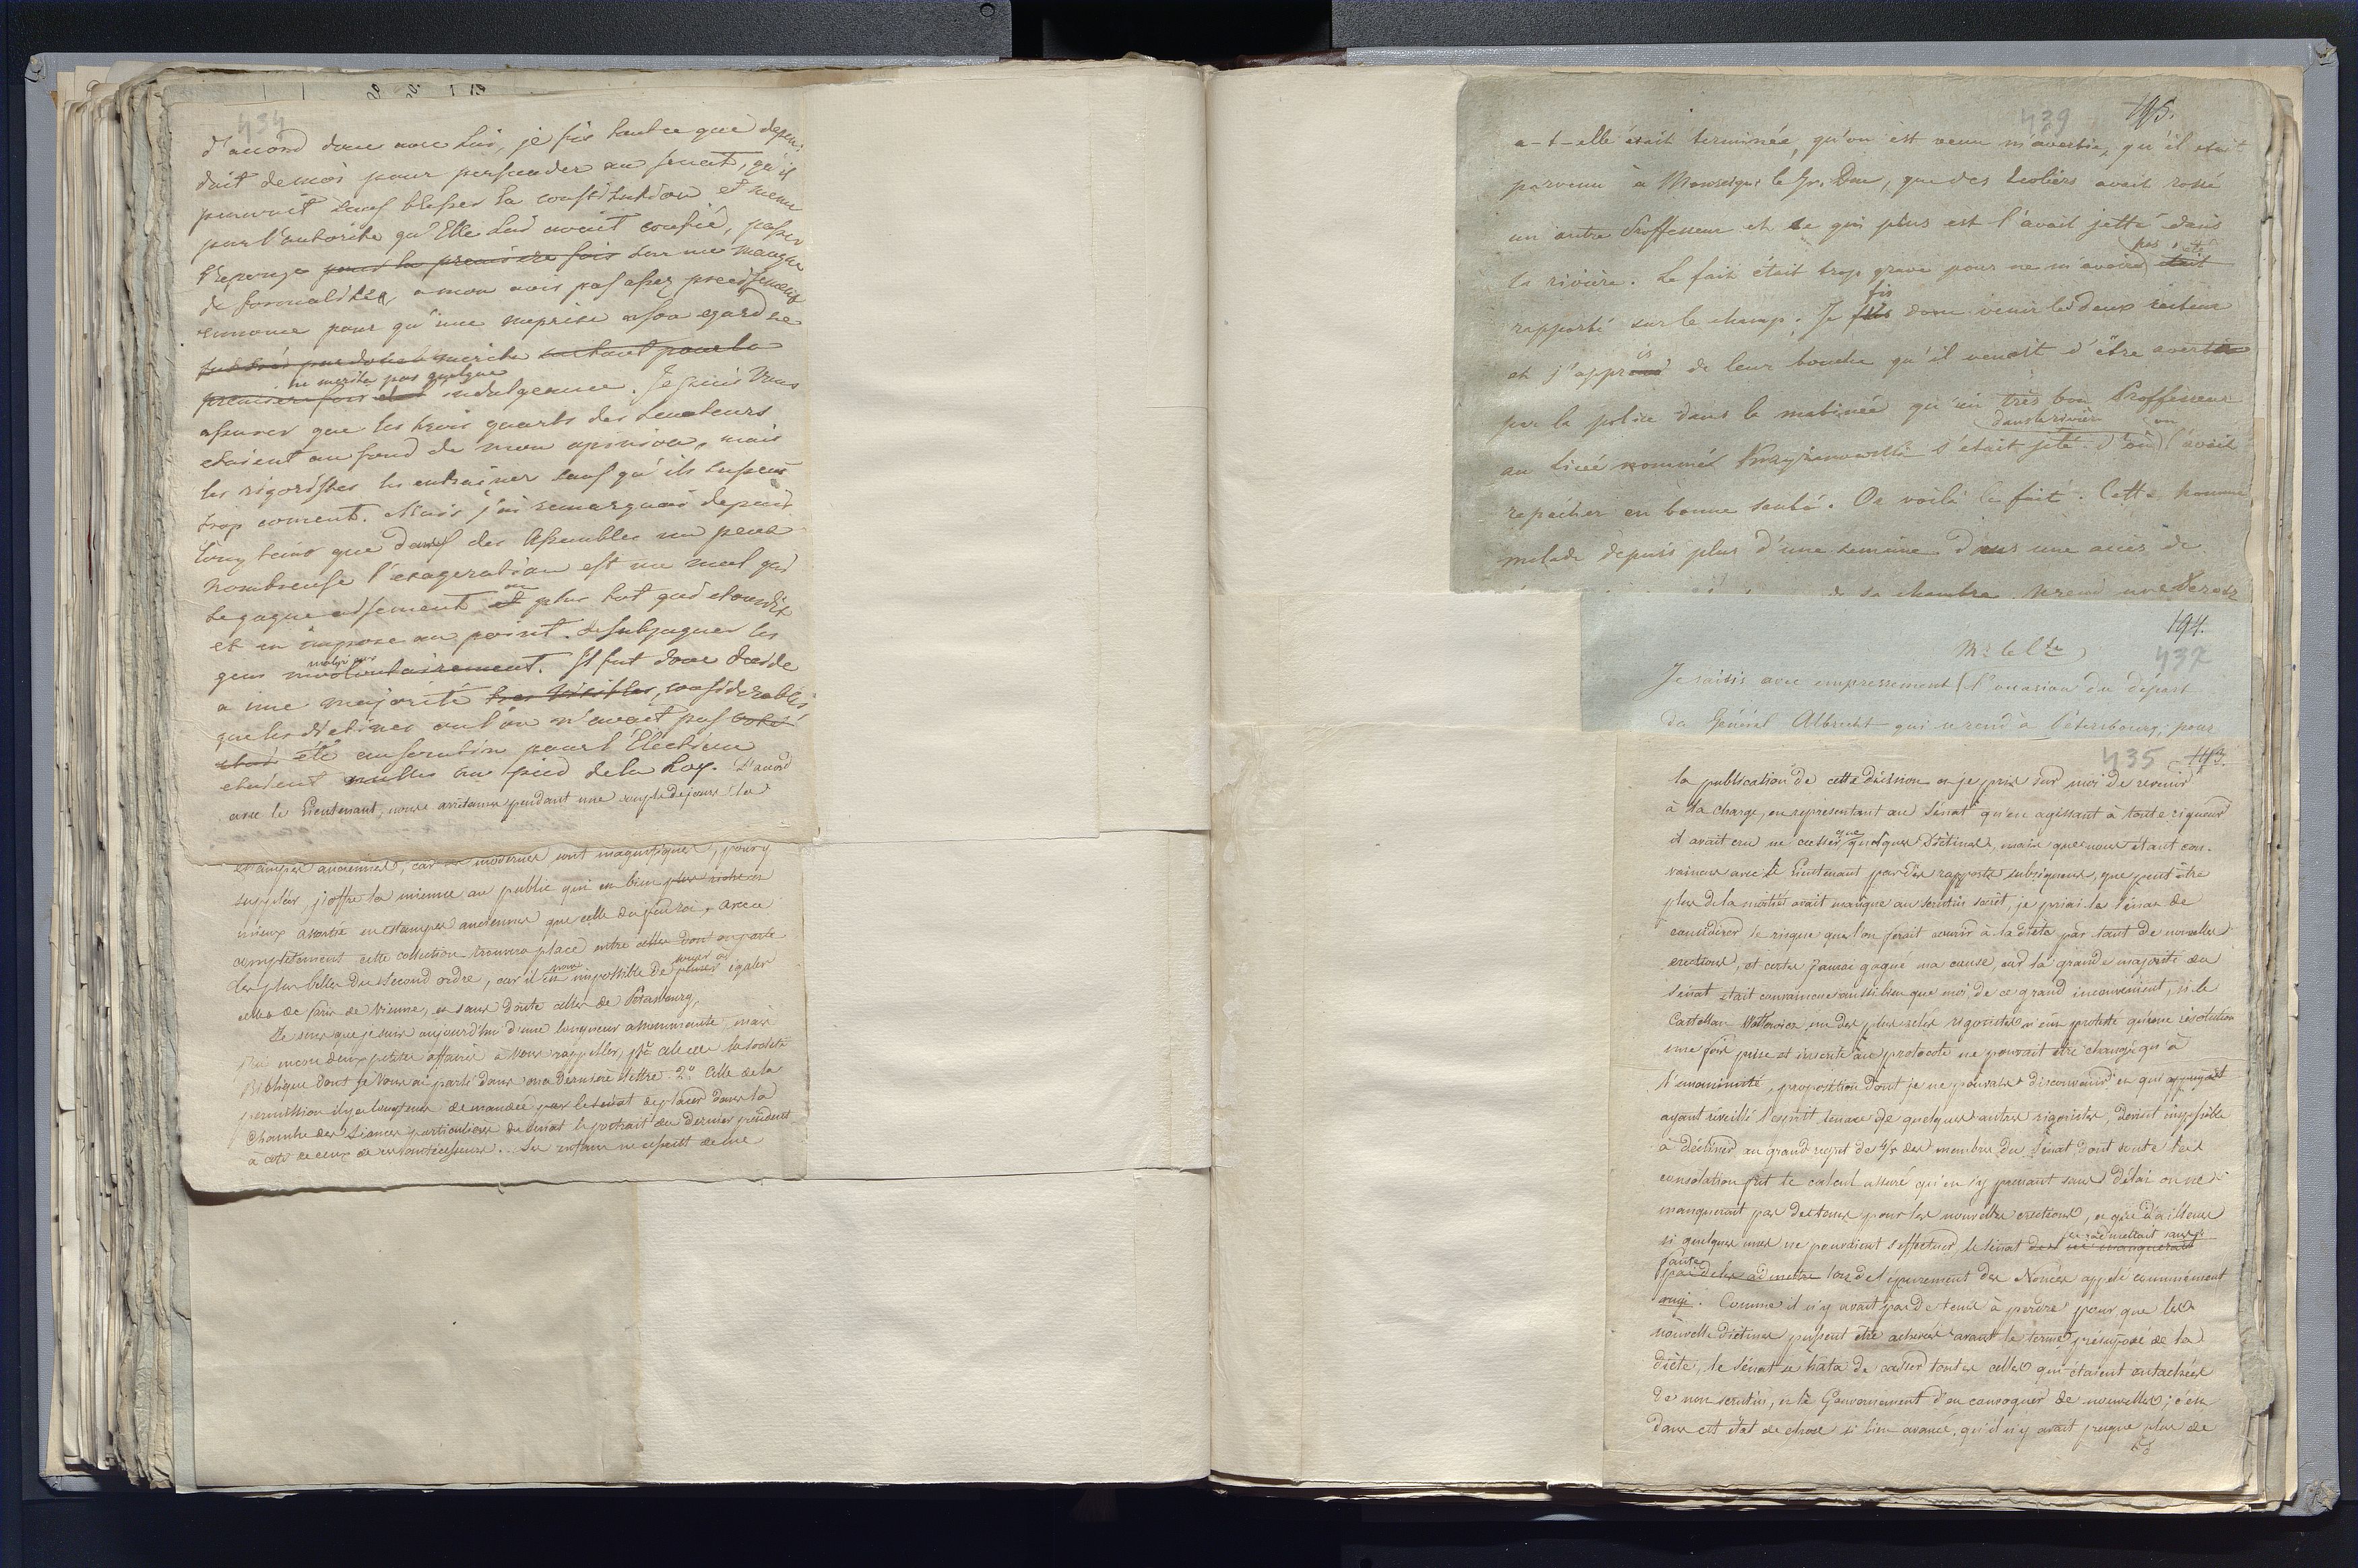 434
d'accord donc avec lui, je fis tout ce que depen-
dait de moi pour persuader au senat, qu'il
pouvait sans blesser la constitution et meme
par l'autorite qu'Elle lui avait confié, passer
l'eponge pour la premiere fois sur un manque
de formalités, a mon avis pas assez precisement
enoncé pour qu'une meprise a son egard ne
merite surtout pour la
ne merite pas quelque
premiere fois indulgeance. Je puis Vous
assurer que les trois quarts des senateurs
etaient au fond de mon opinion, mais
les rigoristes les entrainer sans qu'ils sussent
trop coment. Mais j'ai remarquai depuis
long tems que dans des Assemblee un peux
nombreuse l'exageration est un mal qui
se gagne aisement ou plus tot qui etourdit
et en impose au point de subjuguer les
malgré eux
gens involontairement. Il fut donc decidé
a une majorité tres visibles, considerables
que les Dietines ou l'on n'avait pas voté
été au scrutin pour l'Election
etaient nulles au pied de la Loy. D'acord
avec le Lieutenant, nous arretames pendant une couple de jours la
estampes anciennes, car modernes sont magnifiques, pour y
suppléer j'offre la mienne au public qui en bien plus riche en
mieux assortie en estampes anciennes que celle du feu roi, avec
completement cette collection trouvera place entre celles dont on parle
les plus belles du second ordre, car il en impossible de égaler
celles de Paris de Vienne, et sans doute celles de Petersbourg.
Je sens que je suis aujourd'hui d'une longueur assommante mais
j'ai encore deux petites affaires a vous rappeller, 1º celle de la société
Biblique dont je Vous ai parlé dans ma derniere lettre. 2º Celle de la
permission il y a longtems demandée par le senat de placer dans la
Chambre des séances particulieres du senat le portrait du dernier président
à coté de ceux de ses antécesseurs. Ses enfans ne cessent de me
439 195.
a-t-elle était terminée, qu'on est venu m'avertir, qu'il etait
parvenu à Monseigr. le Gr. Duc, que des Ecoliers avait rossé
un autre Proffesseur et ce qui plus est l'avait jetté dans
pas été
la rivière. Le fait était trop grave pour ne m'avoir était
fis
rapporté sur le champ. Je fus donc venir les deux recteur
is
et j'appris de leur bouche qu'il venait d'être averti
par la police dans la matinée qu'un très bon Proffesseur
dans la rivière on
au Licée nommé s'était jeté d'où l'avait
repêcher en bonne santé. Or voilà le fait. Cette homme
malade depuis plus d'une semaine dans une accès de
de sa chambre, prend une
194.
Mr. le Cte
437
Je saisis avec empressement l'occasion du départ
du Général Albrecht qui se rend à Pétersbourg, pour
435 193.
la publication de cette décision et je pris sur moi de revenir
à la charge, en représentant au Sénat qu'en agissant à toute rigueur
que
il avait cru ne casser quelques Diétines, mais que nous étant con-
vaincus avec le Lieutenant par des rapports subséquens, que peut être
plus de la moitié avait manqué au scrutin secrèt, je priai les sénat de
considérer le risque que l'on ferait courir à la diète par tant de nouvelles
erections, et certes j'aurai gagné ma cause, car la grande majorité du
Sénat était convaincue aussi bien que moi, de ce grand inconvénient, si le
Castellan un des plus zélés rigoristes n'eut protesté qu'une résolution
une fois prise et inscrite au protocole ne pouvait être changé qu'à
l'unanimité, proposition dont je ne pouvais disconvenir et qui
ayant reveillé l'esprit tenace de quelques autres rigoristes, devint impossible
à décliner au grand regret des 4/5 des membres du Sénat, dont toute la
consolation fut le calcul assuré qu'en s'y prenant sans délai on ne
manquerait pas de tems pour les nouvelles erections, et que d'ailleurs
si quelques unes ne pouvaient s'effectuer, le sénat
pas de les admettre lors de l'épurement des Nonces appelé communément
rugi. Comme il n'y avait pas de tems à perdre pour que les
nouvelles diétines pussent être achevées avant le terme présupposé de la
diète, le Sénat se hata de casser toutes celles qui étaient entachées
de non scrutin, et le Gouvernement d'en convoquer de nouvelles; c'est
dans cet état de chose si bien avancé, qu'il n'y avait presque plus de